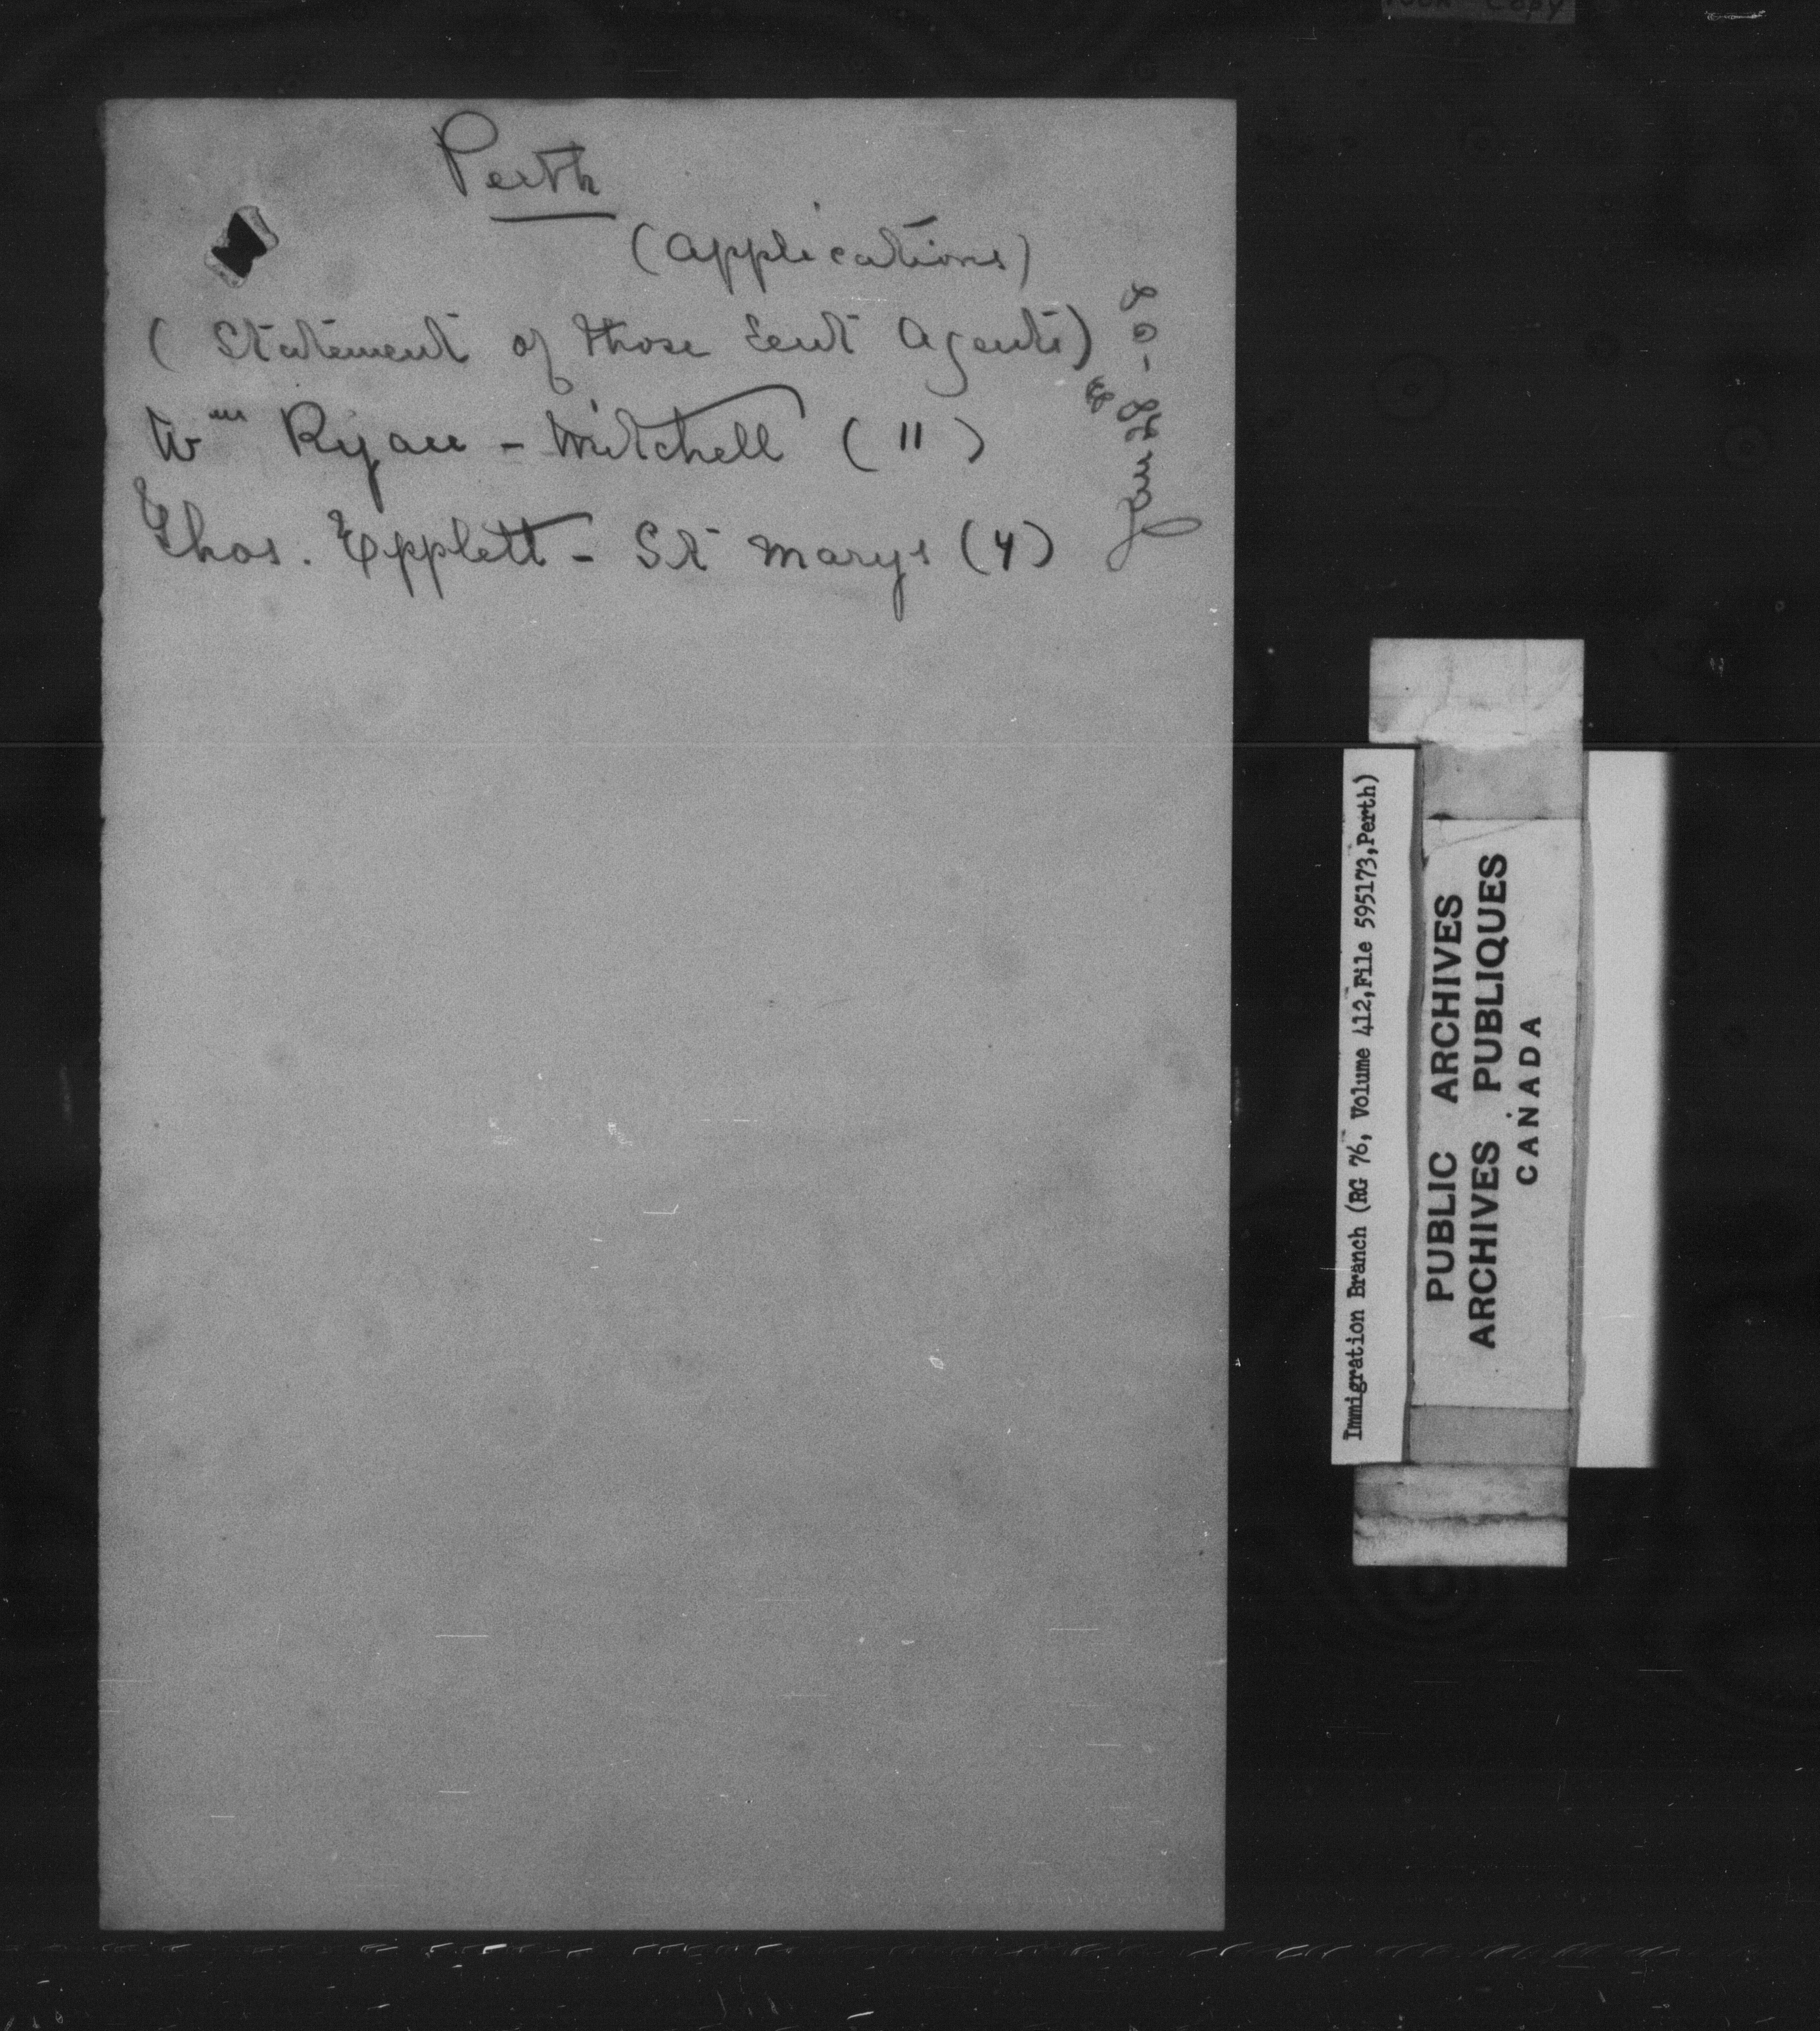 Perth
(Applications)
(Statement of those sent Agents)
Wm Ryan - Mitchell (11)
Thos. Epplett - St Marys (4)
Jan 28-08
Immigration Branch (RG 76, Volume 412, File 595173, Perth)
PUBLIC ARCHIVES
ARCHIVES PUBLIQUES
CANADA
COPY